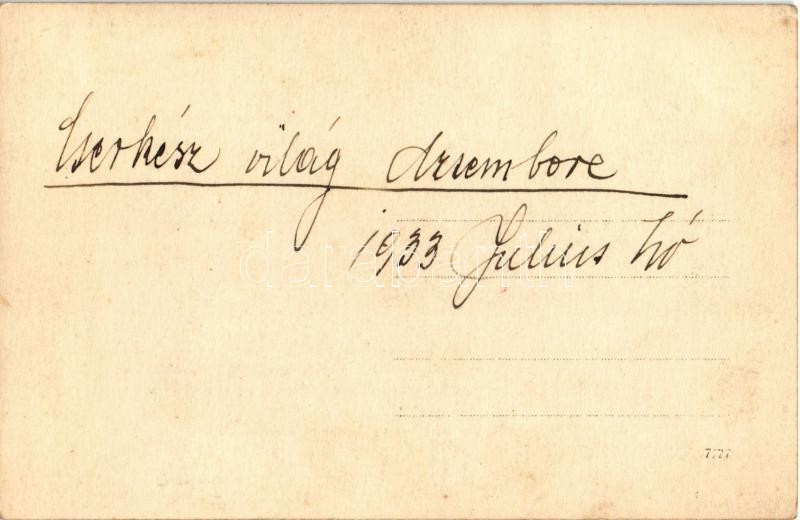 Cserkész világ dzsembore
1933 Julius hó
darabanth
7777